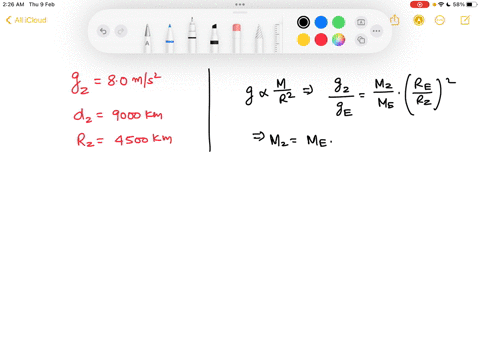 2:26 AM Thu 9 Feb
58%
All iCloud
g_z = 8.0 m/s²
d_z = 9000 km
R_z = 4500 km
g ∝ M/R² ⇒ g_z/g_E = M_z/M_E · (R_E/R_z)²
⇒ M_z = M_E ·